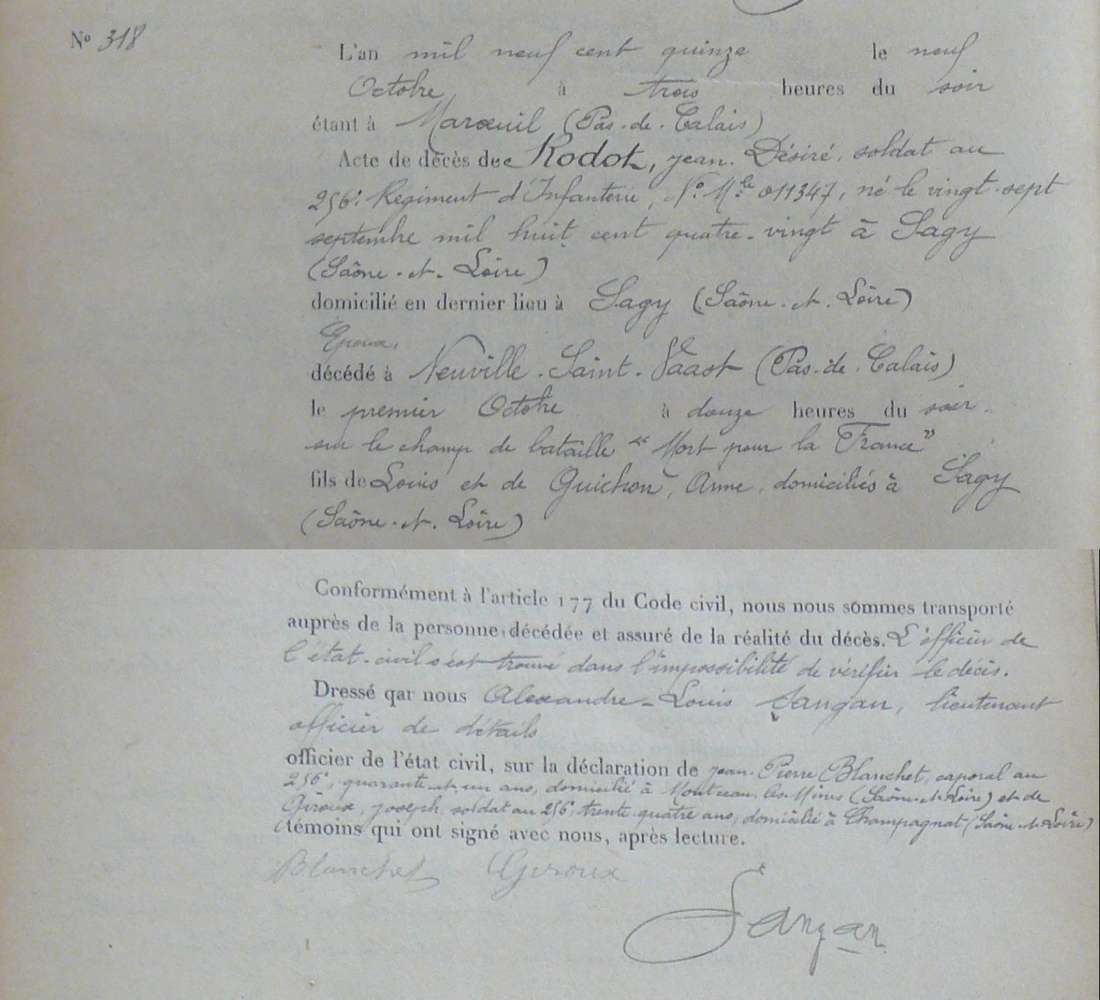 N° 318
L'an mil neuf cent quinze le neuf
Octobre à trois heures du soir
étant à Maroeuil (Pas-de-Calais)
Acte de décès de Rodot, jean Désiré, soldat au
256e Régiment d'Infanterie, N° Mle 011347, né le vingt-sept
septembre mil huit cent quatre-vingt à Sagy
(Saône-et-Loire)
domicilié en dernier lieu à Sagy (Saône-et-Loire)
Epoux,
décédé à Neuville-Saint-Vaast (Pas-de-Calais)
le premier Octobre à douze heures du soir.
sur le champ de bataille "Mort pour la France"
fils de Louis et de Guichon, Anne, domiciliés à Sagy
(Saône-et-Loire)
Conformément à l'article 177 du Code civil, nous nous sommes transporté
auprès de la personne décédée et assuré de la réalité du décès. L'officier de
l'état-civil s'est trouvé dans l'impossibilité de vérifier le décès.
Dressé qar nous Alexandre-Louis Sangan, lieutenant
officier de détails
officier de l'état civil, sur la déclaration de jean-Pierre Blanchet, caporal au
256e, quarante-et-un ans, domicilié à Montceau-les-Mines (Saône-et-Loire) et de
Giroux, joseph, soldat au 256e, trente-quatre ans, domicilié à Champagnat (Saône-et-Loire)
témoins qui ont signé avec nous, après lecture.
Blanchet Giroux
Sangan